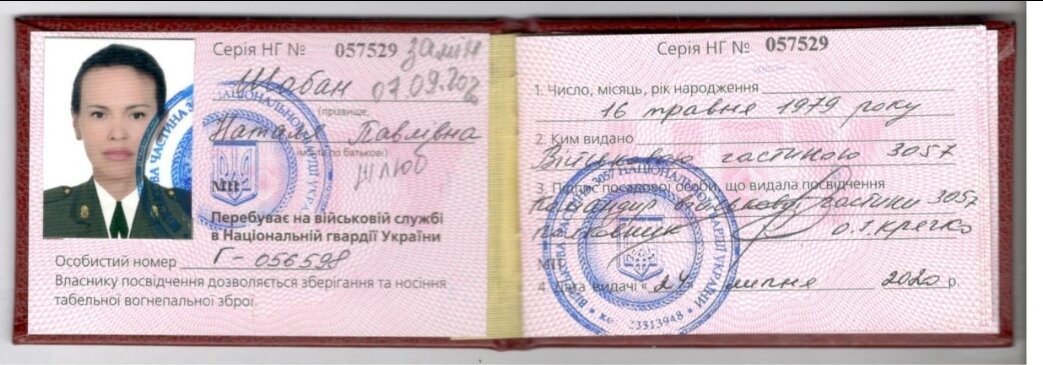 Серія НГ № 057529
Шабан 07.09.202
(прізвище,
Наталя Павлівна
МП
Перебуває на військовій службі
в Національній гвардії України
Особистий номер Г-056598
Власнику посвідчення дозволяється зберігання та носіння
табельної вогнепальної зброї.
Серія НГ № 057529
1. Число, місяць, рік народження
16 травня 1979 року
2. Ким видано
Військовою частиною 3057
3. Підпис посадової особи, що видала посвідчення
Командир військової частини 3057
полковник
МП
4. Дата видачі « 24 » липня 2020 р.
ВІЙСЬКОВА ЧАСТИНА 3057 НАЦІОНАЛЬНОЇ ГВАРДІЇ УКРАЇНИ
23313948